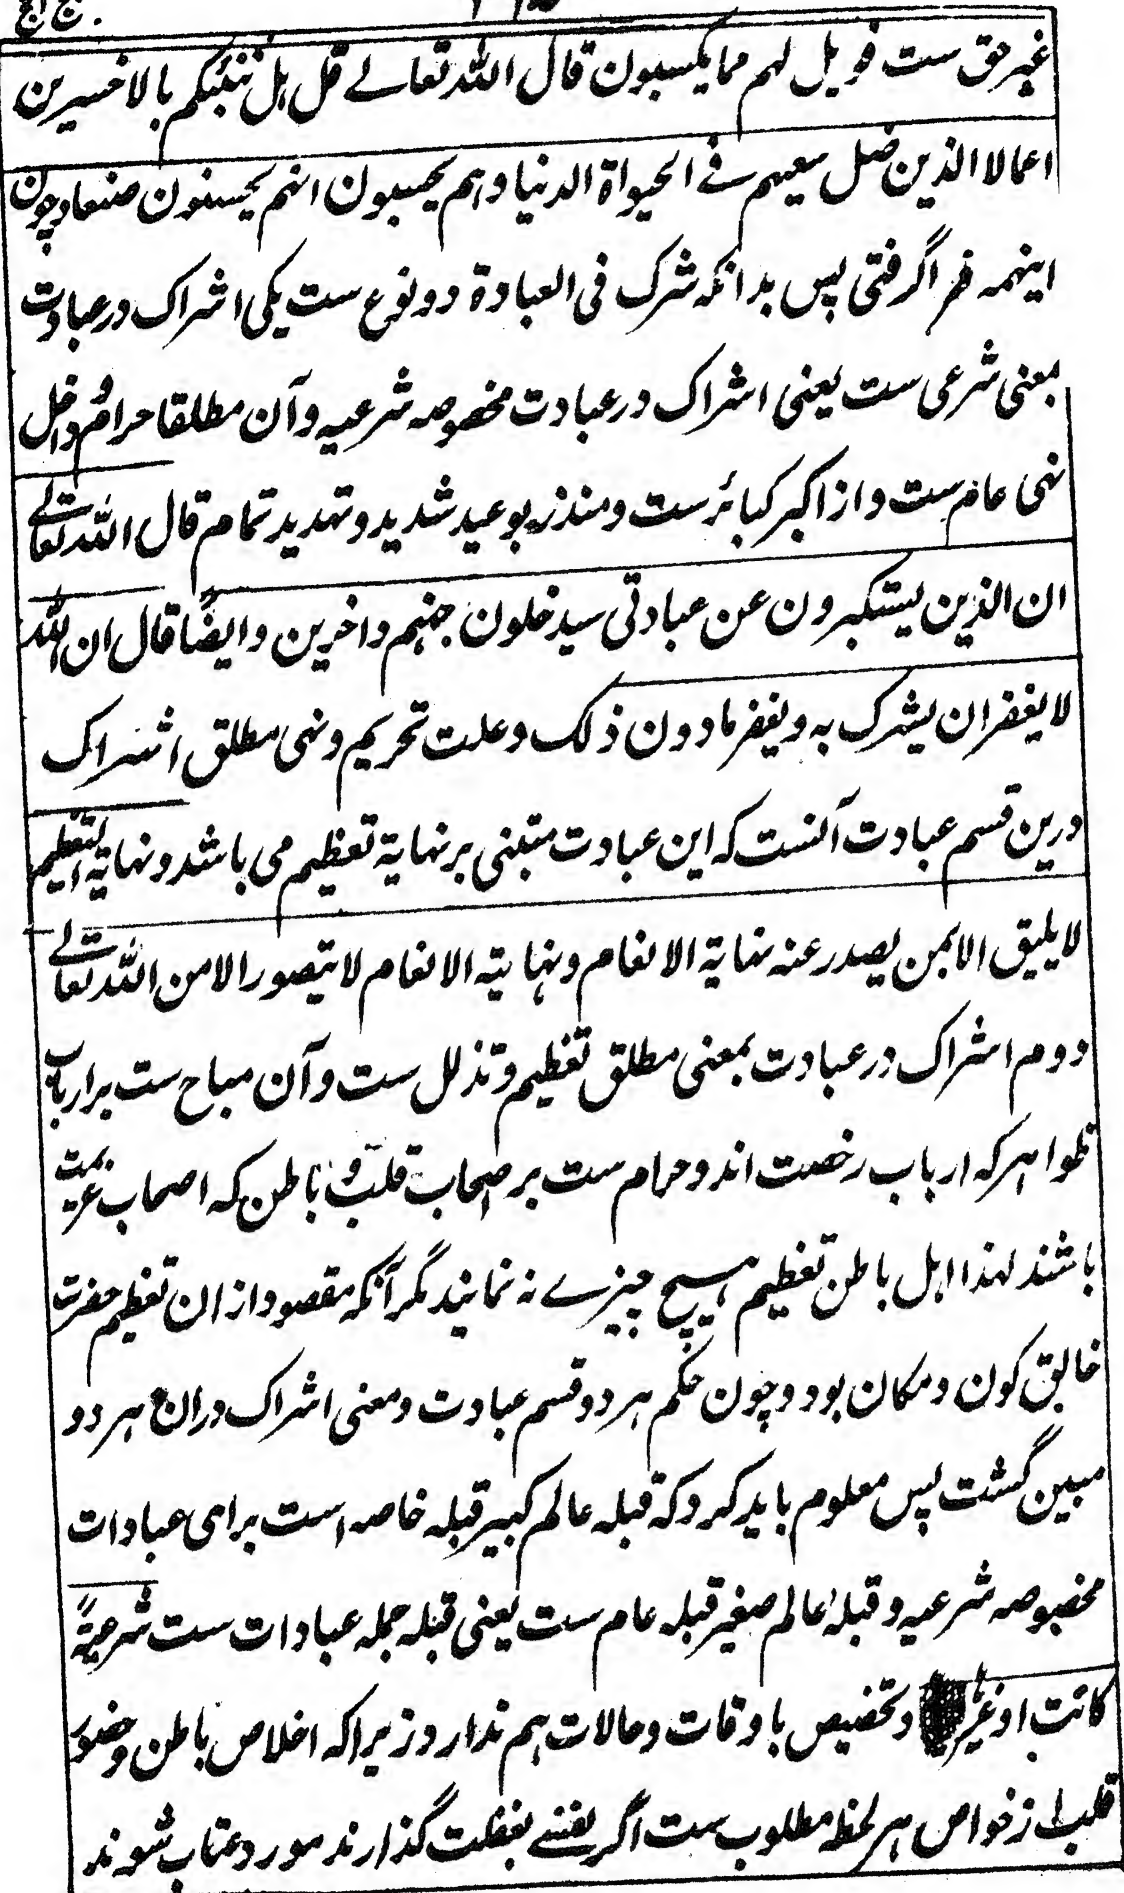 غیر حق ست فویل لهم مما یکسبون قال الله تعالے قل هل ننبئکم بالاخسرین
اعمالا الذین ضل سعیهم فے الحیواة الدنیا و هم یحسبون انهم یحسنون صنعا و چون
اینهمه فرا گرفتی پس بدانکه شرک فی العبادة دو نوع ست یکی اشراک در عبادت
بمعنی شرعی ست یعنی اشراک در عبادت مخصوصه شرعیه و آن مطلقا حرام و داخل
نهی عام ست و از اکبر کبائر ست و منذر بوعید شدید و تهدید تمام قال الله تعالے
ان الذین یستکبرون عن عبادتی سیدخلون جهنم داخرین و ایضًا قال ان الله
لا یغفر ان یشرک به و یغفر مادون ذلک و علت تحریم و نهی مطلق اشراک
درین قسم عبادت آنست که این عبادت مبتنی بر نهایة تعظیم می باشد و نهایة التعظیم
لا یلیق الا بمن یصدر عنه نهایة الانعام و نهایته الانعام لا یتصور الا من الله تعالے
دوم اشراک در عبادت بمعنی مطلق تعظیم و تذلل ست و آن مباح ست بر ارباب
ظواهر که ارباب رخصت اند و حرام ست بر اصحاب قلب و باطن که اصحاب عزیمت
باشند لهذا اهل باطن تعظیم هیچ چیزے نه نمایند مگر آنکه مقصود از ان تعظیم حضرت
خالق کون و مکان بود و چون حکم هر دو قسم عبادت و معنی اشراک دران هر دو
مبین گشت پس معلوم باید کرد که قبله عالم کبیر قبله خاصه است برای عبادات
مخصوصه شرعیه و قبلۀ عالم صغیر قبله عام ست یعنی قبله جمله عبادات ست شرعیةً
کانت او غیر و تخصیص باوقات و حالات هم ندارد زیرا که اخلاص باطن و حضور
قلب از خواص هر لحظه مطلوب ست اگر نفسے بغفلت گذارند مورد عتاب شوند